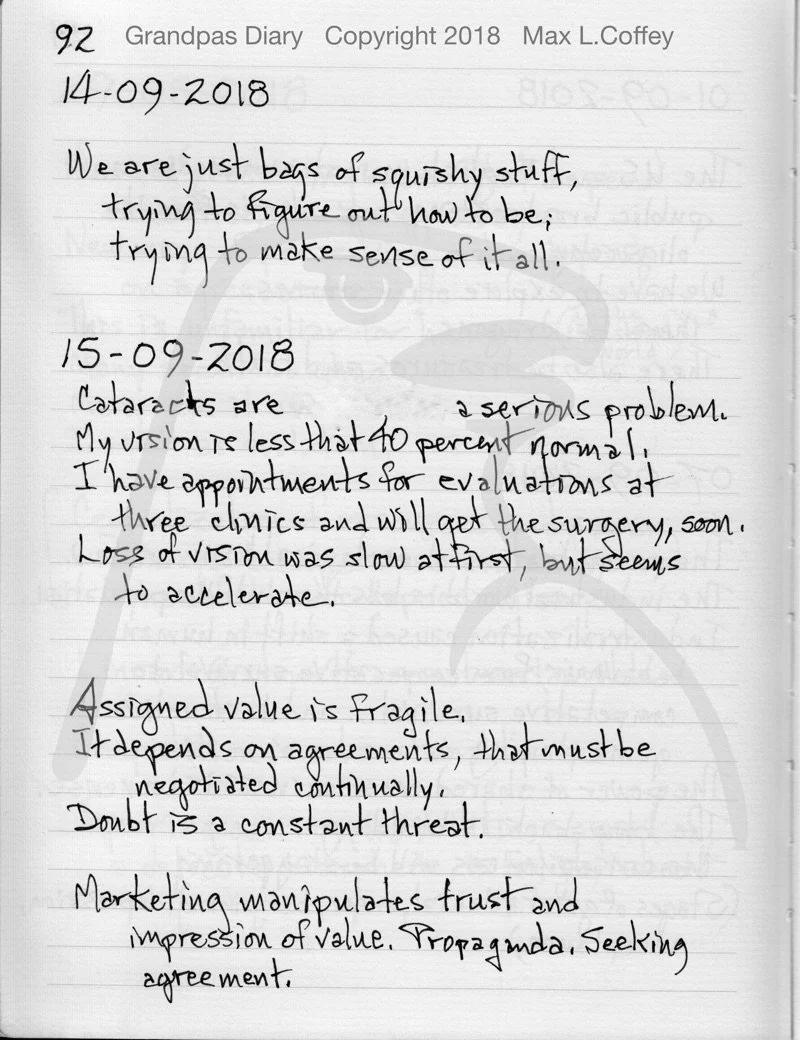 92 Grandpas Diary Copyright 2018 Max L.Coffey
14-09-2018
We are just bags of squishy stuff,
trying to figure out how to be;
trying to make sense of it all.
15-09-2018
Cataracts are a serious problem.
My vision is less that 40 percent normal.
I have appointments for evaluations at
three clinics and will get the surgery, soon.
Loss of vision was slow at first, but seems
to accelerate.
Assigned value is fragile.
It depends on agreements, that must be
negotiated continually.
Doubt is a constant threat.
Marketing manipulates trust and
impression of value. Propaganda. Seeking
agreement.